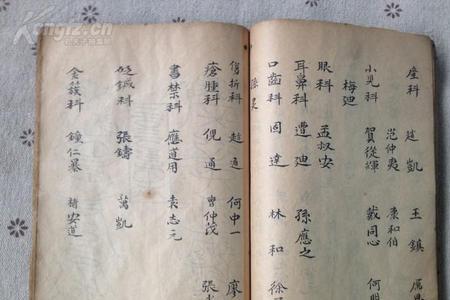 產科 趙凱 王鎮
范仲夷 康和伯
小兒科 賀從暉 戴同心
梅廸
眼科 孟叔安
耳鼻科 遭廸 孫應之
口齒科 固達 林和
傷折科 趙通 何中一 廖
瘡腫科 倪通 曾仲茂
書禁科 應道用 袁志元
砭鍼科 張鑄 萬凱
金鏃科 鐘仁暴 楮安道
Kongfz.com